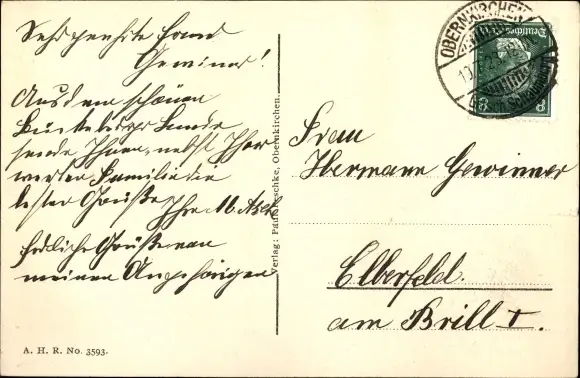 Sehr geehrte Frau
Gewinner!
Aus dem schönen
Bückeburger Lande
sende Ihnen, nebst Ihrer
werten Familie die
besten Grüße Ihre M.
Grüße von
meinen Angehörigen
A. H. R. No. 3593.
Verlag: Obernkirchen.
OBERNKIRCHEN
Deutsches
8 8
Frau
Hermann Gewinner
Elberfeld.
am Brill I.